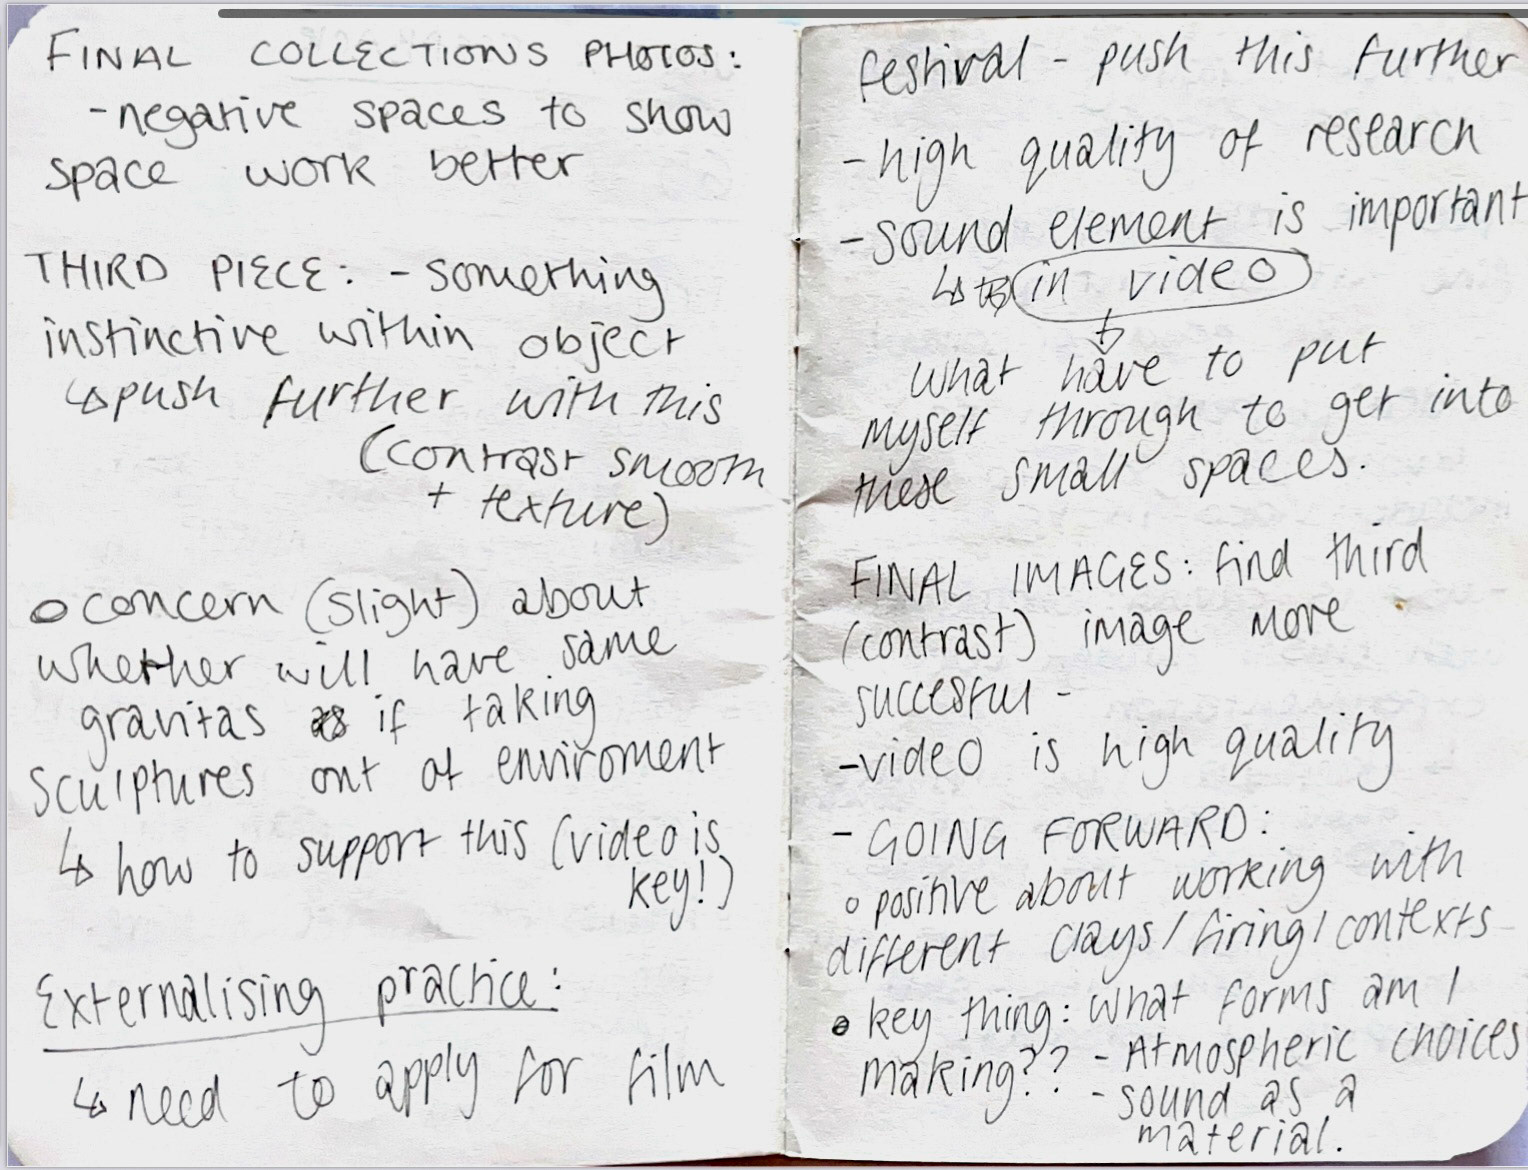 FINAL COLLECTIONS PHOTOS:
- negative spaces to show
space work better
THIRD PIECE: - something
instinctive within object
↳ push further with this
(contrast smooth
+ texture)
○ concern (slight) about
whether will have same
gravitas as if taking
sculptures out of enviroment
↳ how to support this (video is
key!)
Externalising practice:
↳ need to apply for film
festival - push this further
- high quality of research
- sound element is important
↳ in video
↓
what have to put
myself through to get into
these small spaces.
FINAL IMAGES: find third
(contrast) image more
succesful -
- video is high quality
- GOING FORWARD:
○ positive about working with
different clays / firing / contexts
○ key thing: what forms am I
making?? - Atmospheric choices
- sound as a
material.